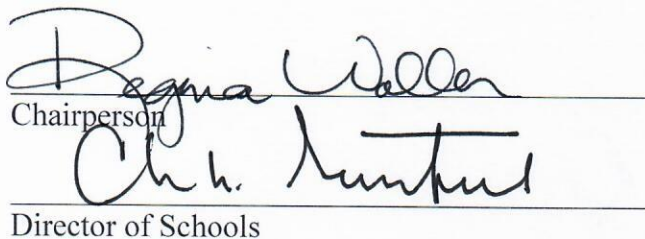 Regina Waller
Chairperson
Director of Schools